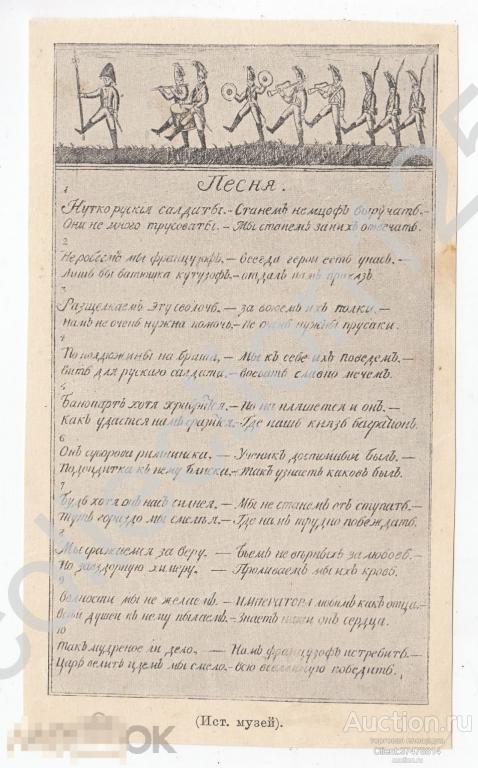 Песня.
1
Нутко руския салдаты. — Станемъ немцофъ выручать. —
Они не много трусоваты. — Мы станемъ за нихъ отвечать.
2
Неробеемъ мы французофъ. — всегда герои есть унасъ. —
Лишь бы батюшка кутузофъ. — отдалъ намъ приказъ.
3
Разщелкаемъ эту сволочь. — за воюемъ ихъ полки. —
намъ не очень нужна помочь. — не очень нужны прусаки.
4
По полдюжины на брата. — Мы к себе ихъ поведемъ. —
вить для рускаго салдата. — воевать славно мечемъ.
5
Банопарте хотя — Но ни пляшется и онъ. —
Какъ удастся намъ — Где нашъ князь багратионъ.
6
Онъ суворова римника. — Ученик достойный былъ. —
Подойди к нему — такъ узнаетъ каковъ былъ.
7
Будь хотя онъ насъ силнея. — Мы не станемъ отступать. —
Тутъ гораздо мы смелья. — Где на нъ трудно побеждать.
8
Мы сражаемся за веру. — Бьемъ не верныхъ за любовь. —
Но завздорную химеру. — Проливаемъ мы ихъ кровь.
9
волности мы не желаемъ. — ИМПЕРАТОРА любимъ какъ отца. —
Всей душей къ нему пылаемъ. — Знаетъ онъ сердца.
10
такъ мудреное ли дело. — Намъ французофъ истребить. —
Царь велитъ идемъ мы смело. — всю вселенную победить.
(Ист. музей).
collection125
OK
Auction.ru
торговая площадка
Client:37478814
auction.ru